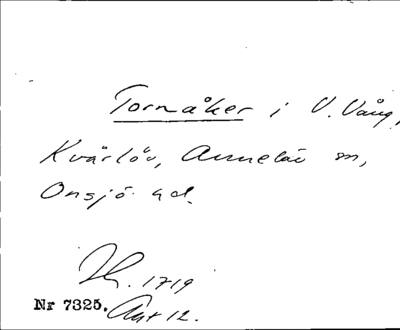 Tornåker i V. Vång,
Kvärlöv, Annelöv sn,
Onsjö hd.
Lh. 1719
Nr 7325. Akt 12.